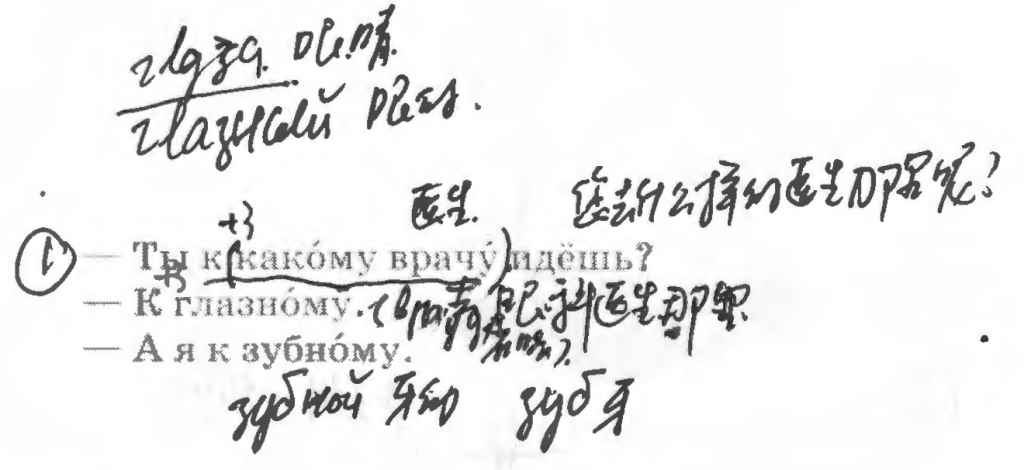 глаза. 眼睛
глазной 眼的.
医生. 您去什么样的医生那里呢?
+3
① — Ты к какóму врачý идёшь?
+3
— К глазнóму. 眼科医生那里
— А я к зубнóму.
зубной 牙的 зуб 牙